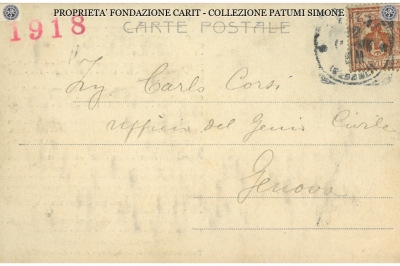 PROPRIETA' FONDAZIONE CARIT - COLLEZIONE PATUMI SIMONE
1918
CARTE POSTALE
Ing Carlo Corsi
Ufficio del Genio Civile
Genova